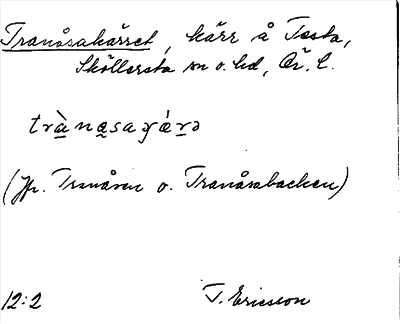 Tranåsakärret, kärr å Tasta,
Sköllersta sn o. hd, Ör. l.
trànasaɣárə
(Jfr. Tranåsen o. Tranåsabacken)
12:2 T. Ericsson